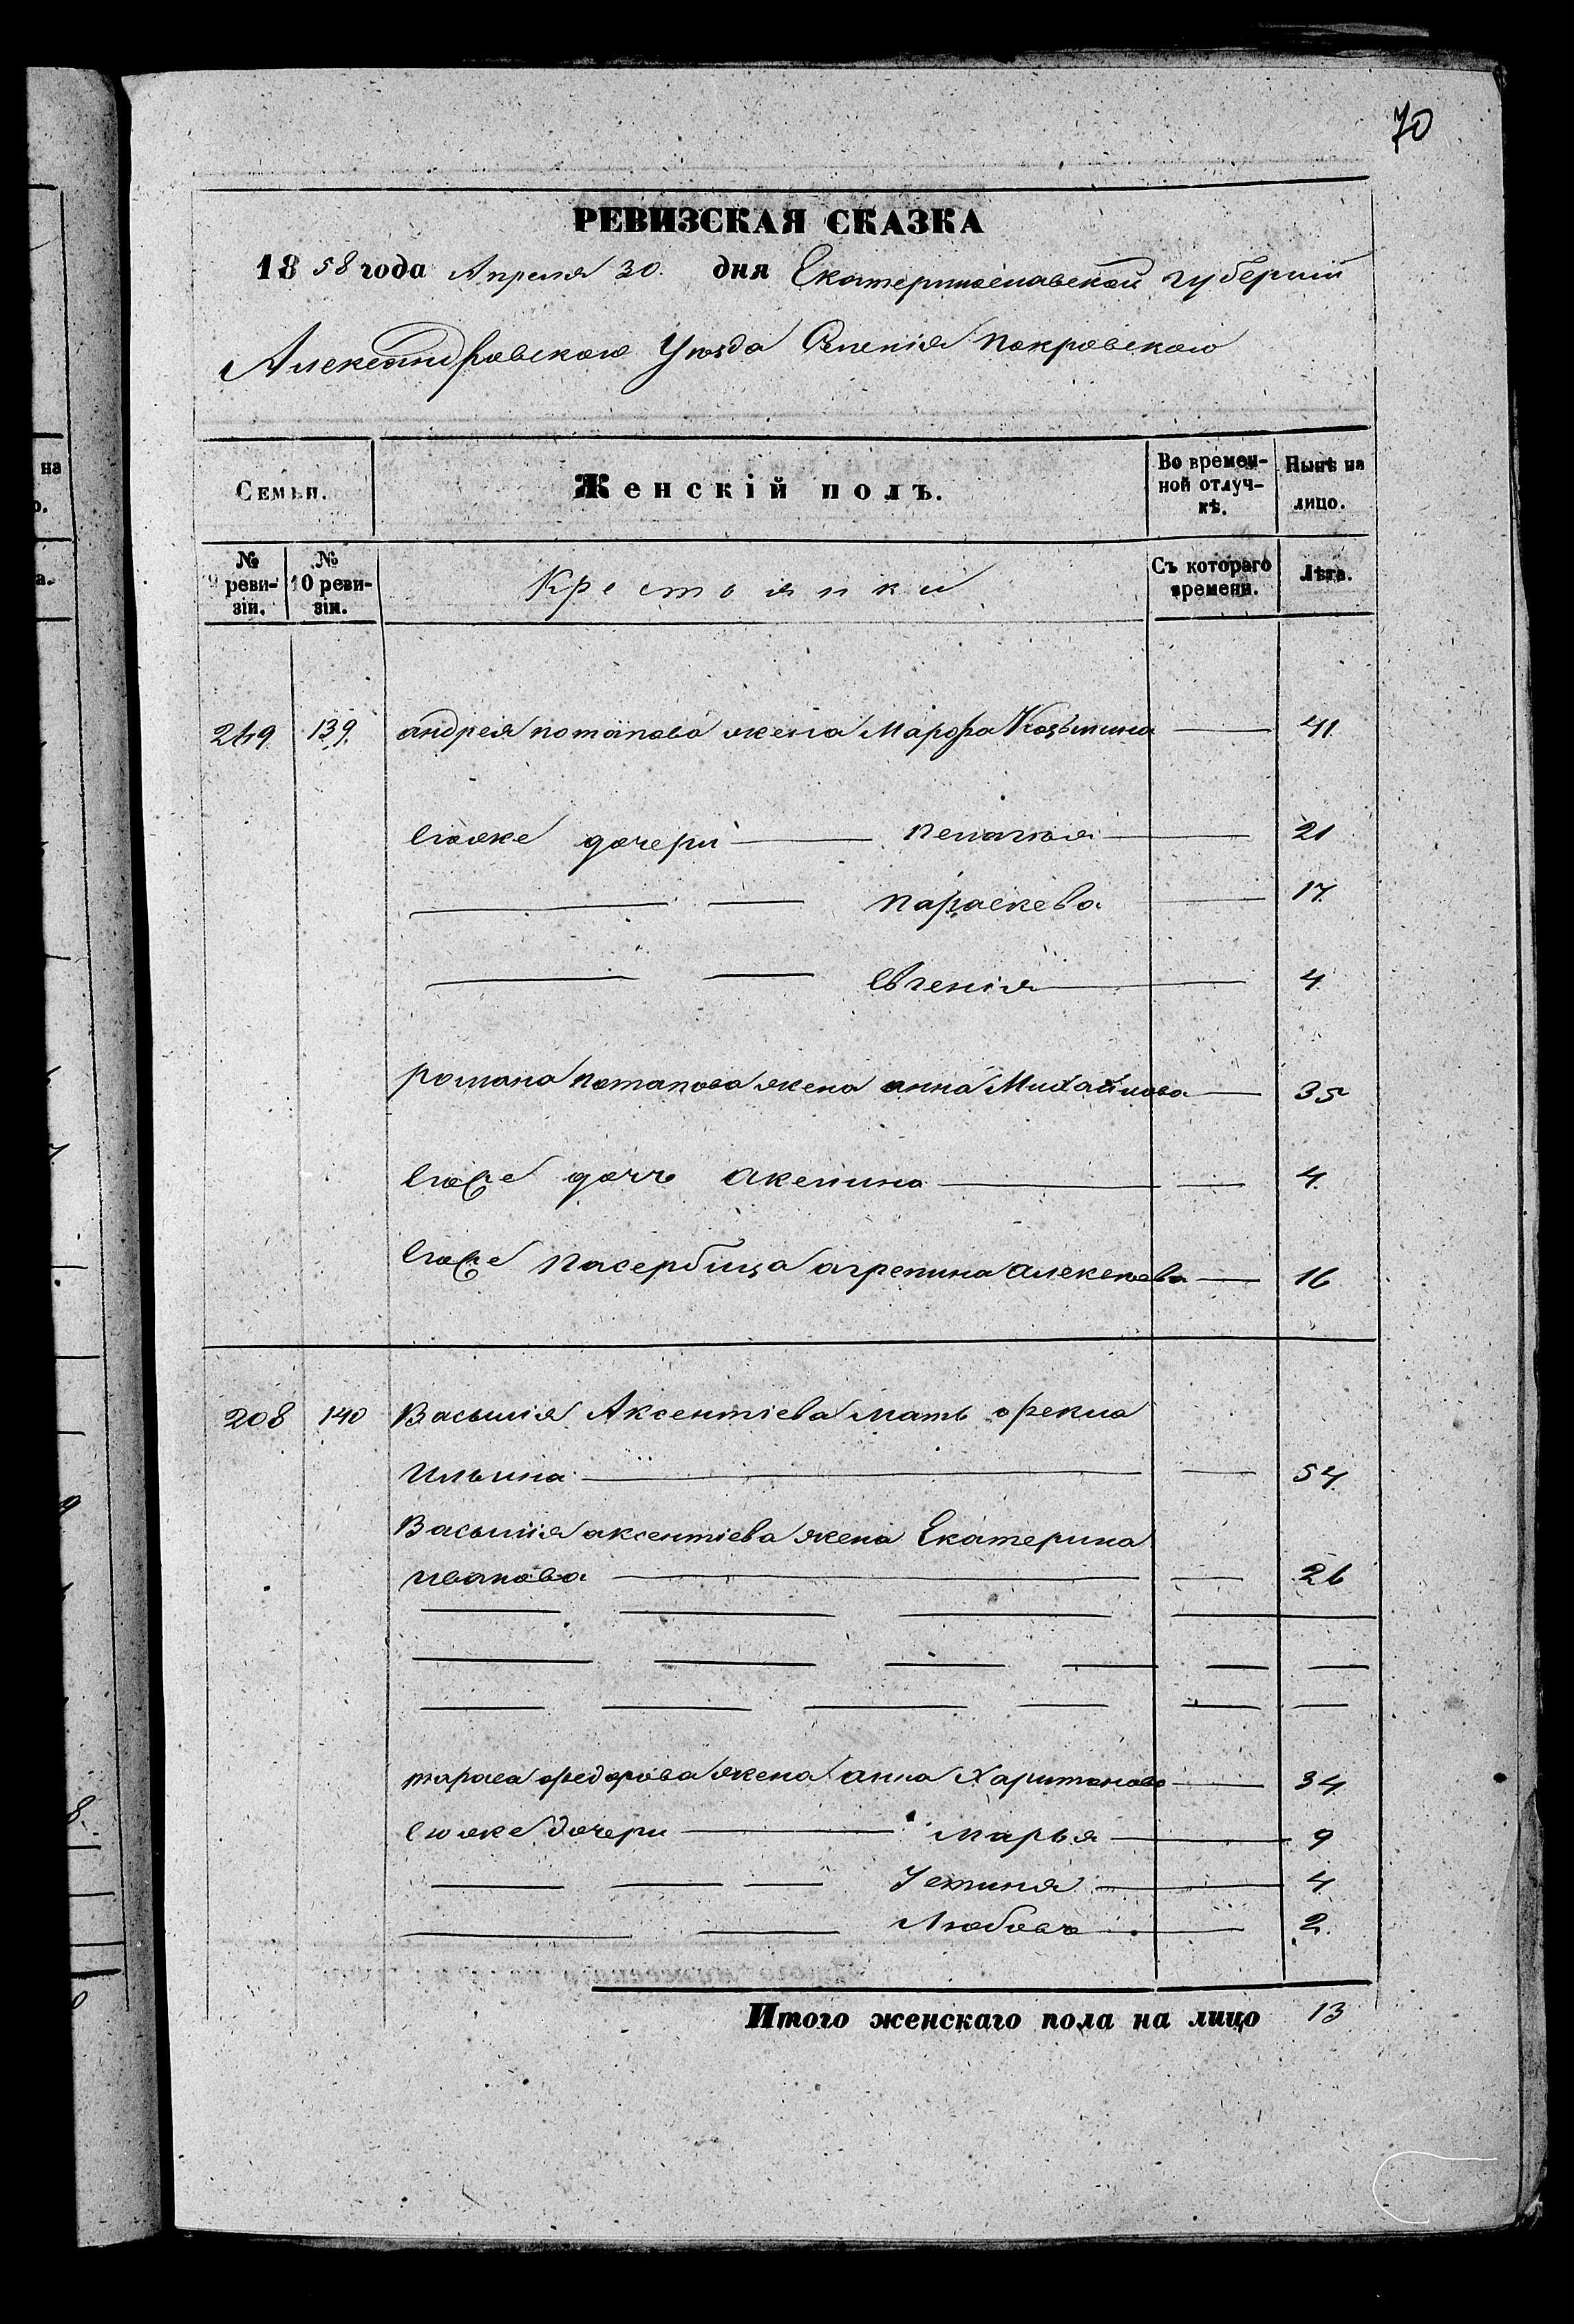 70
РЕВИЗСКАЯ СКАЗКА
1858 года Апреля 30. дня Екатеринославской губерніи
Александровскаго Уѣзда Селенія Покровскаго
Семьи. Женскій полъ. Во временной отлучкѣ. Нынѣ на лицо.
№ 9 ревизіи. № 10 ревизіи. Крестьянки Съ котораго времени. Лѣта.
249 139. андрея потапова жена Марфа Козьмина — 41.
Егоже дочери — пелагея — 21
— — параскева — 17.
— — евгенія — 4.
романа потапова жена анна Михайлова — 35
Егоже дочь акелина — 4.
Егоже пасербица агрепина алексеева — 16
208 140 Василія Аксентіева мать фекла
Ильина — 54.
Василія аксентіева жена Екатерина
иванова — 26
тараса федорова жена анна Харитонова — 34.
Егоже дочери — марья — 9
— — — Устиня — 4.
— — Любовь — 2.
Итого женскаго пола на лицо 13